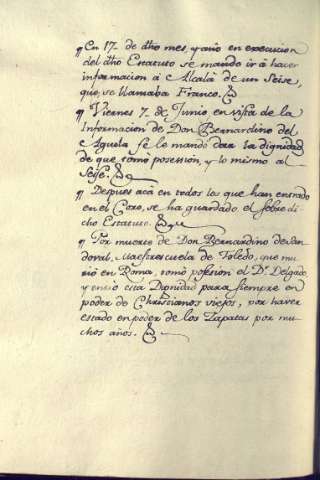 ¶ En 17. de dho mes, y año en execucion
del dho Estatuto se mando ir á hacer
informacion á Alcalà de un Seise,
que se llamaba Franco.
¶ Viernes 7. de Junio en vista de la
Informacion de Don Bernardino del
Aguila se le mandò dar la dignidad
de que tomò posession, y lo mismo al
Seise.
¶ Despues acà en todos los que han entrado
en el Coro, se ha guardado el sobre di
cho Estatuto.
¶ Por muerte de Don Bernardino de San
doval, Maestrescuela de Toledo, que mu
riò en Roma, tomò posesion el Dr. Delgado
y entrò esta Dignidad para siempre en
poder de Christianos viejos, por haver
estado en poder de los Zapatas por mu
chos años.